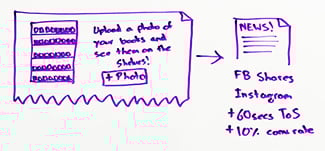 Upload a photo of
your books and
see them on the
shelves!
+ Photo
NEWS!
FB Shares
Instagram
+60secs ToS
+10% conv rate